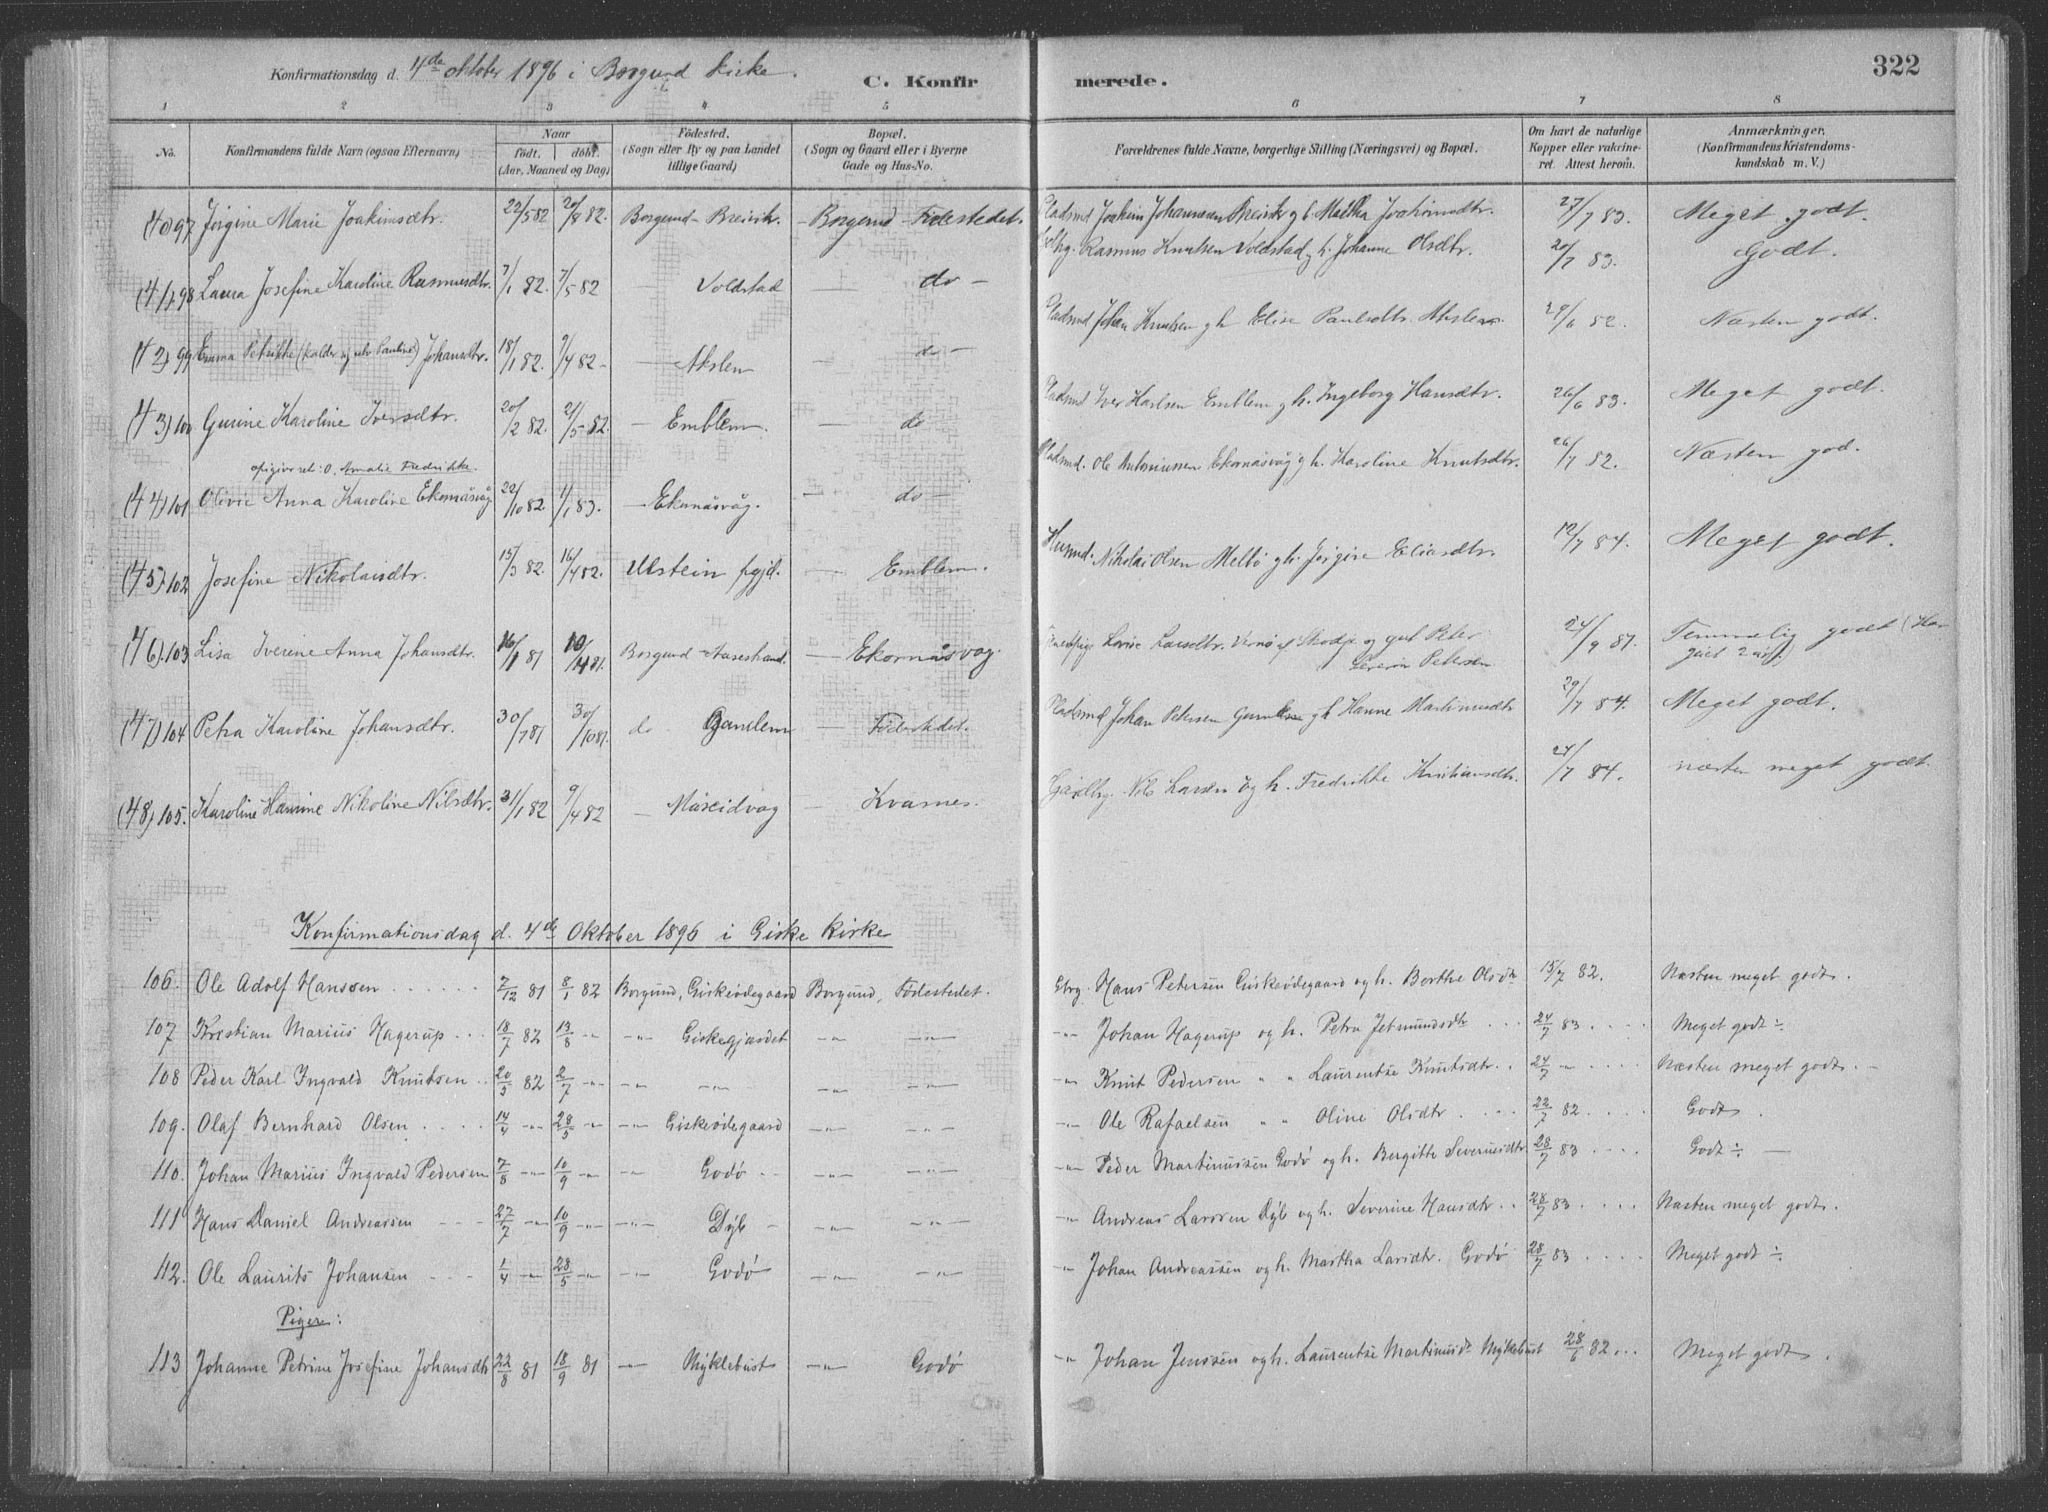 322
Konfirmationsdag d. 4de oktober 1896 i Borgund kirke. C. Konfirmerede.
1 2 3 4 5 6 7 8
No. Konfirmandens fulde Navn (ogsaa Efternavn) Naar født. døbt. (Aar, Maaned og Dag) Fødested. (Sogn eller By og paa Landet tillige Gaard) Bopæl. (Sogn og Gaard eller i Byerne Gade og Hus-No. Forældrenes fulde Navne, borgerlige Stilling (Næringsvei) og Bopæl. Om havt de naturlige Kopper eller vakcineret. Attest herom. Anmærkninger. (Konfirmandens Kristendomskundskab m. V.)
(40) 97 Jørgine Marie Joakimsdtr. 22/5 82 20/8 82. Borgund - Breivik - Borgund Fødestedet. Pladsmd Joakim Johannesen Breivik g h. Joakimsdtr. 27/7 83. Meget godt.
(41) 98 Laura Josefine Karoline Rasmusdtr. 7/1 82. 7/5 82 — Voldstad — do — Rasmus Knutsen Voldstad g h. Johanne Olsdtr. 20/7 83. Godt.
(42) 99 Emma Petrikke (kalder sig selv Pauline) Johansdtr. 18/1 82. 9/4 82 — Akslen — do — Pladsmd Johan Knutsen g h Elise Paulsdtr. Akslen 29/6 82. Næsten godt.
(43) 100 Gurine Karoline Iversdtr. 20/2 82. 21/5 82. — Emblem. — do Pladsmd Iver Karlsen Emblem g h. Ingeborg Hansdtr. 26/6 83. Meget godt.
opgiver selv: O. Amalie Fredrikke.
(44) 101 Olivie Anna Karoline Ekornåsvåg 22/10 82. 1/1 83. — Ekornåsvåg. — do — Pladsmd. Ole Antoniussen Ekornåsvåg g h. Karoline Knutsdtr. 26/7 82. Næsten god.
(45) 102 Josefine Nikolaisdtr. 15/3 82. 16/4 82. Ulstein pgjd. — Emblem. Husmd. Nikolai Olsen Melbø g h. Jørgine Eliasdtr. 12/7 84. Meget godt.
(46) 103 Lisa Iverine Anna Johansdtr. 16/1 81 10/4 81. Borgund Aasestrand. — Ekornåsvåg. Lovise Larsdtr. af Skodje og Peter Severin Petersen 24/9 81. Temmelig godt
(47) 104 Petra Karoline Johansdtr. 30/7 81 30/10 81. do — Fødestedet. Pladsmd Johan Petersen g h Hanne Martinusdtr 29/7 84. Meget godt.
(48) 105. Karoline Hansine Nikoline Nilsdtr. 31/1 82 9/4 82 — Måseidvåg — Kvasnes. Gaardbg. Nils Larsen og h. Fredrikke Kristiansdtr. 24/7 84. næsten meget godt.
Konfirmationsdag d. 4de Oktober 1896 i Giske Kirke
106. Ole Adolf Hanssen 7/12 81 8/1 82 Borgund, Giskeødegaard Borgund, Fødestedet. Gbrg. Hans Petersen Giskeødegaard og h. Berthe Olsdtr 15/7 82. Næsten meget godt.
107 Kristian Marius Hagerup 18/7 82 13/8 -"- -"- Giskegjærdet -"- -"- -"- Johan Hagerup og h. Petra Jetmundsdtr 24/7 83 Meget godt ÷
108 Peder Karl Ingvald Knutsen 20/5 82 2/7 -"- -"- -"- -"- -"- -"- Knut Pedersen " " Laurentse Knutsdtr. 24/7 -"- Næsten meget godt. -
109. Olaf Bernhard Olsen 14/4 -"- 28/5 -"- -"- Giskeødegaard -"- -"- -"- Ole Rafaelsen " " Oline Olsdtr 22/7 82 Godt.
110. Johan Marius Ingvald Pedersen 7/8 -"- 10/9 -"- -"- Godø -"- -"- -"- Peder Martinussen Godø og h. Bergitte Severinsdtr. 28/7 83 Godt ÷
111 Hans Daniel Andreassen 27/7 -"- 10/9 -"- -"- Dyb -"- -"- -"- Andreas Larssen Dyb og h. Severine Hansdtr 28/7 83 Næsten meget godt.
112. Ole Laurits Johansen 1/4 -"- 28/5 -"- -"- Godø -"- -"- -"- Johan Andreassen og h. Martha Larsdtr. Godø 28/7 83 Meget godt ÷
Piger:
113 Johanne Petrine Josefine Johansdtr 22/8 81 18/9 81 -"- Myklebust -"- Godø -"- Johan Jenssen og h. Laurentse Martinusdtr Myklebust 28/6 82 Meget godt.